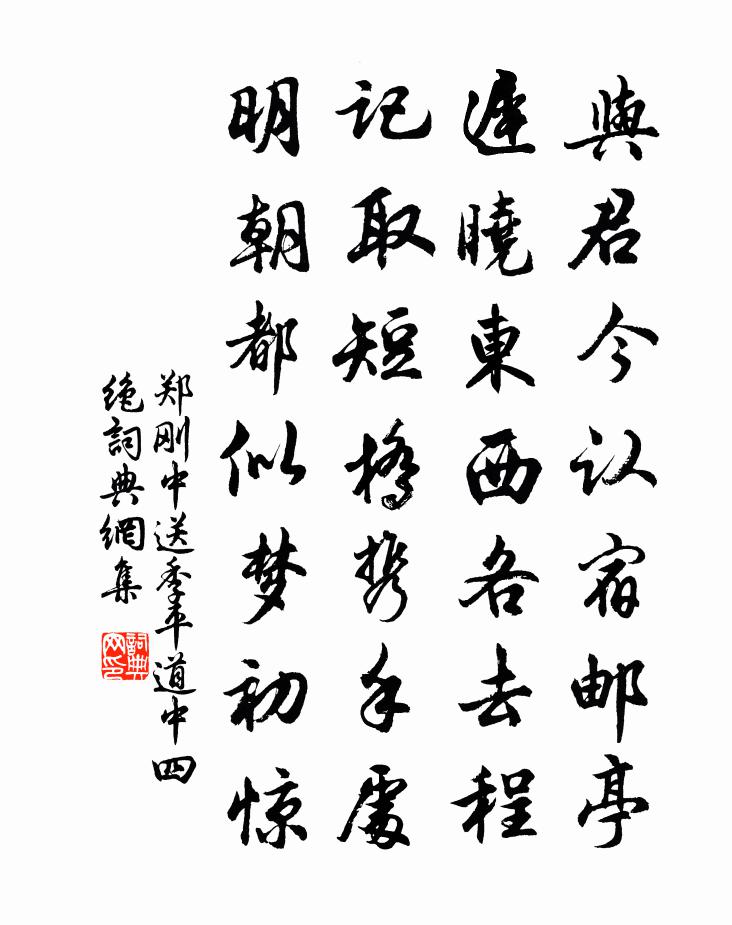 與君今认宿邮亭
遲曉東西各去程
记取短橋携手處
明朝都似梦初惊
郑刚中送季平道中四
绝詞典網集
詞典网印